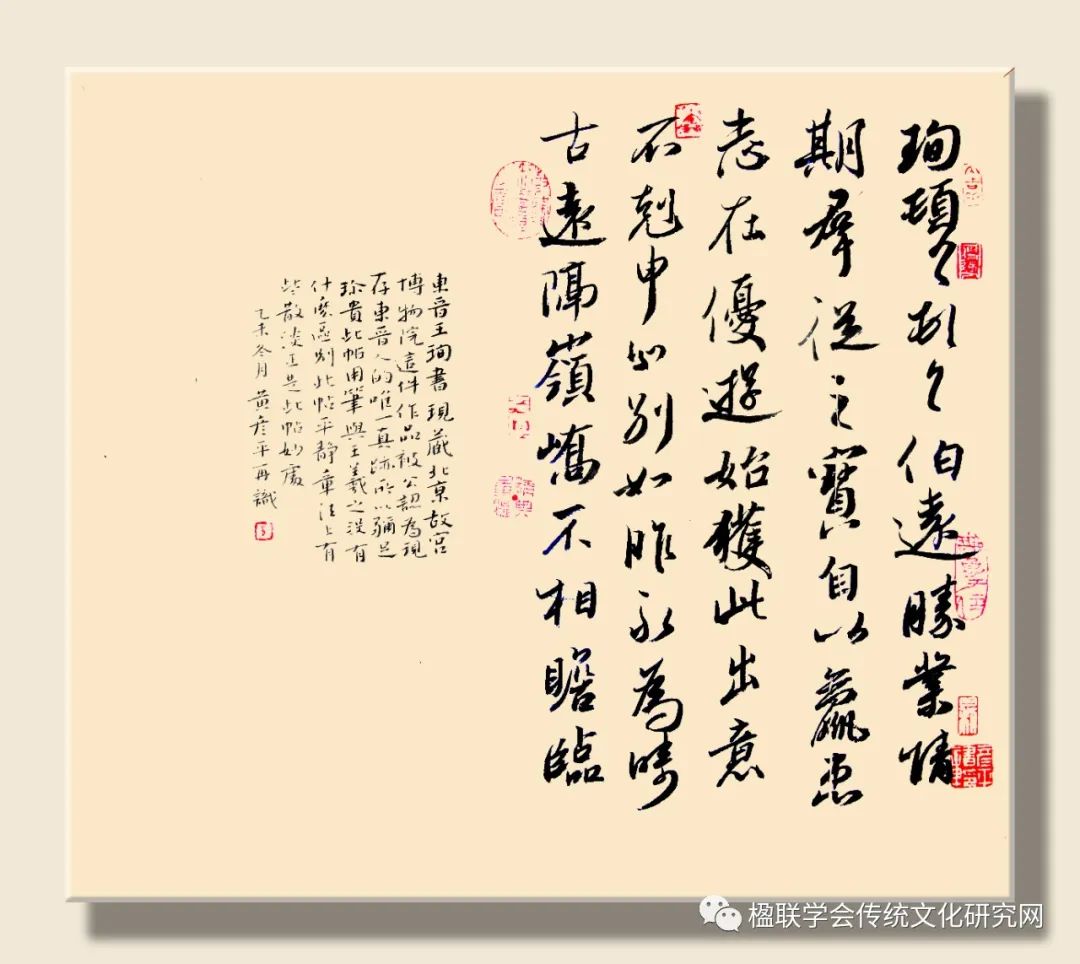 珣頓首頓首伯遠勝業情
期羣從之寶自以羸患
志在優遊始獲此出意
不剋申分別如昨永為疇
古遠隔嶺嶠不相瞻臨
東晉王珣書現藏北京故宮
博物院這件作品被公認為現
存東晉人的唯一真跡所以彌足
珍貴此帖用筆與王羲之没有
什麽區别此帖平靜章法上有
些散淡正是此帖妙處
乙未冬月 黄彦平再識
楹联学会传统文化研究网